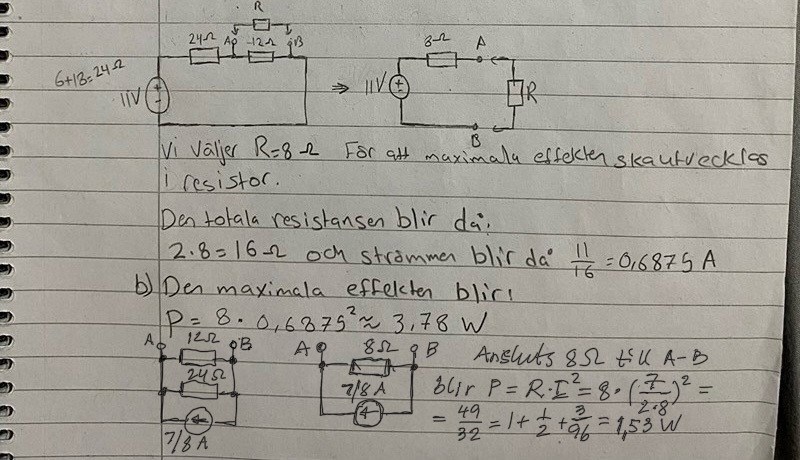 R
24Ω A 12Ω B
6+18=24Ω
11V
8Ω A
⇒ 11V R
B
Vi väljer R=8Ω För att maximala effekten ska utvecklas
i resistor.
Den totala resistansen blir då:
2·8=16Ω och strömmen blir då 11/16 = 0,6875 A
b) Den maximala effekten blir:
P = 8 · 0,6875² ≈ 3,78 W
A 12Ω B
24Ω
7/8 A
A 8Ω B
7/8 A
Ansluts 8Ω till A-B
blir P = R·I² = 8·(7/2·8)² =
= 49/32 = 1 + 1/2 + 3/96 = 1,53 W